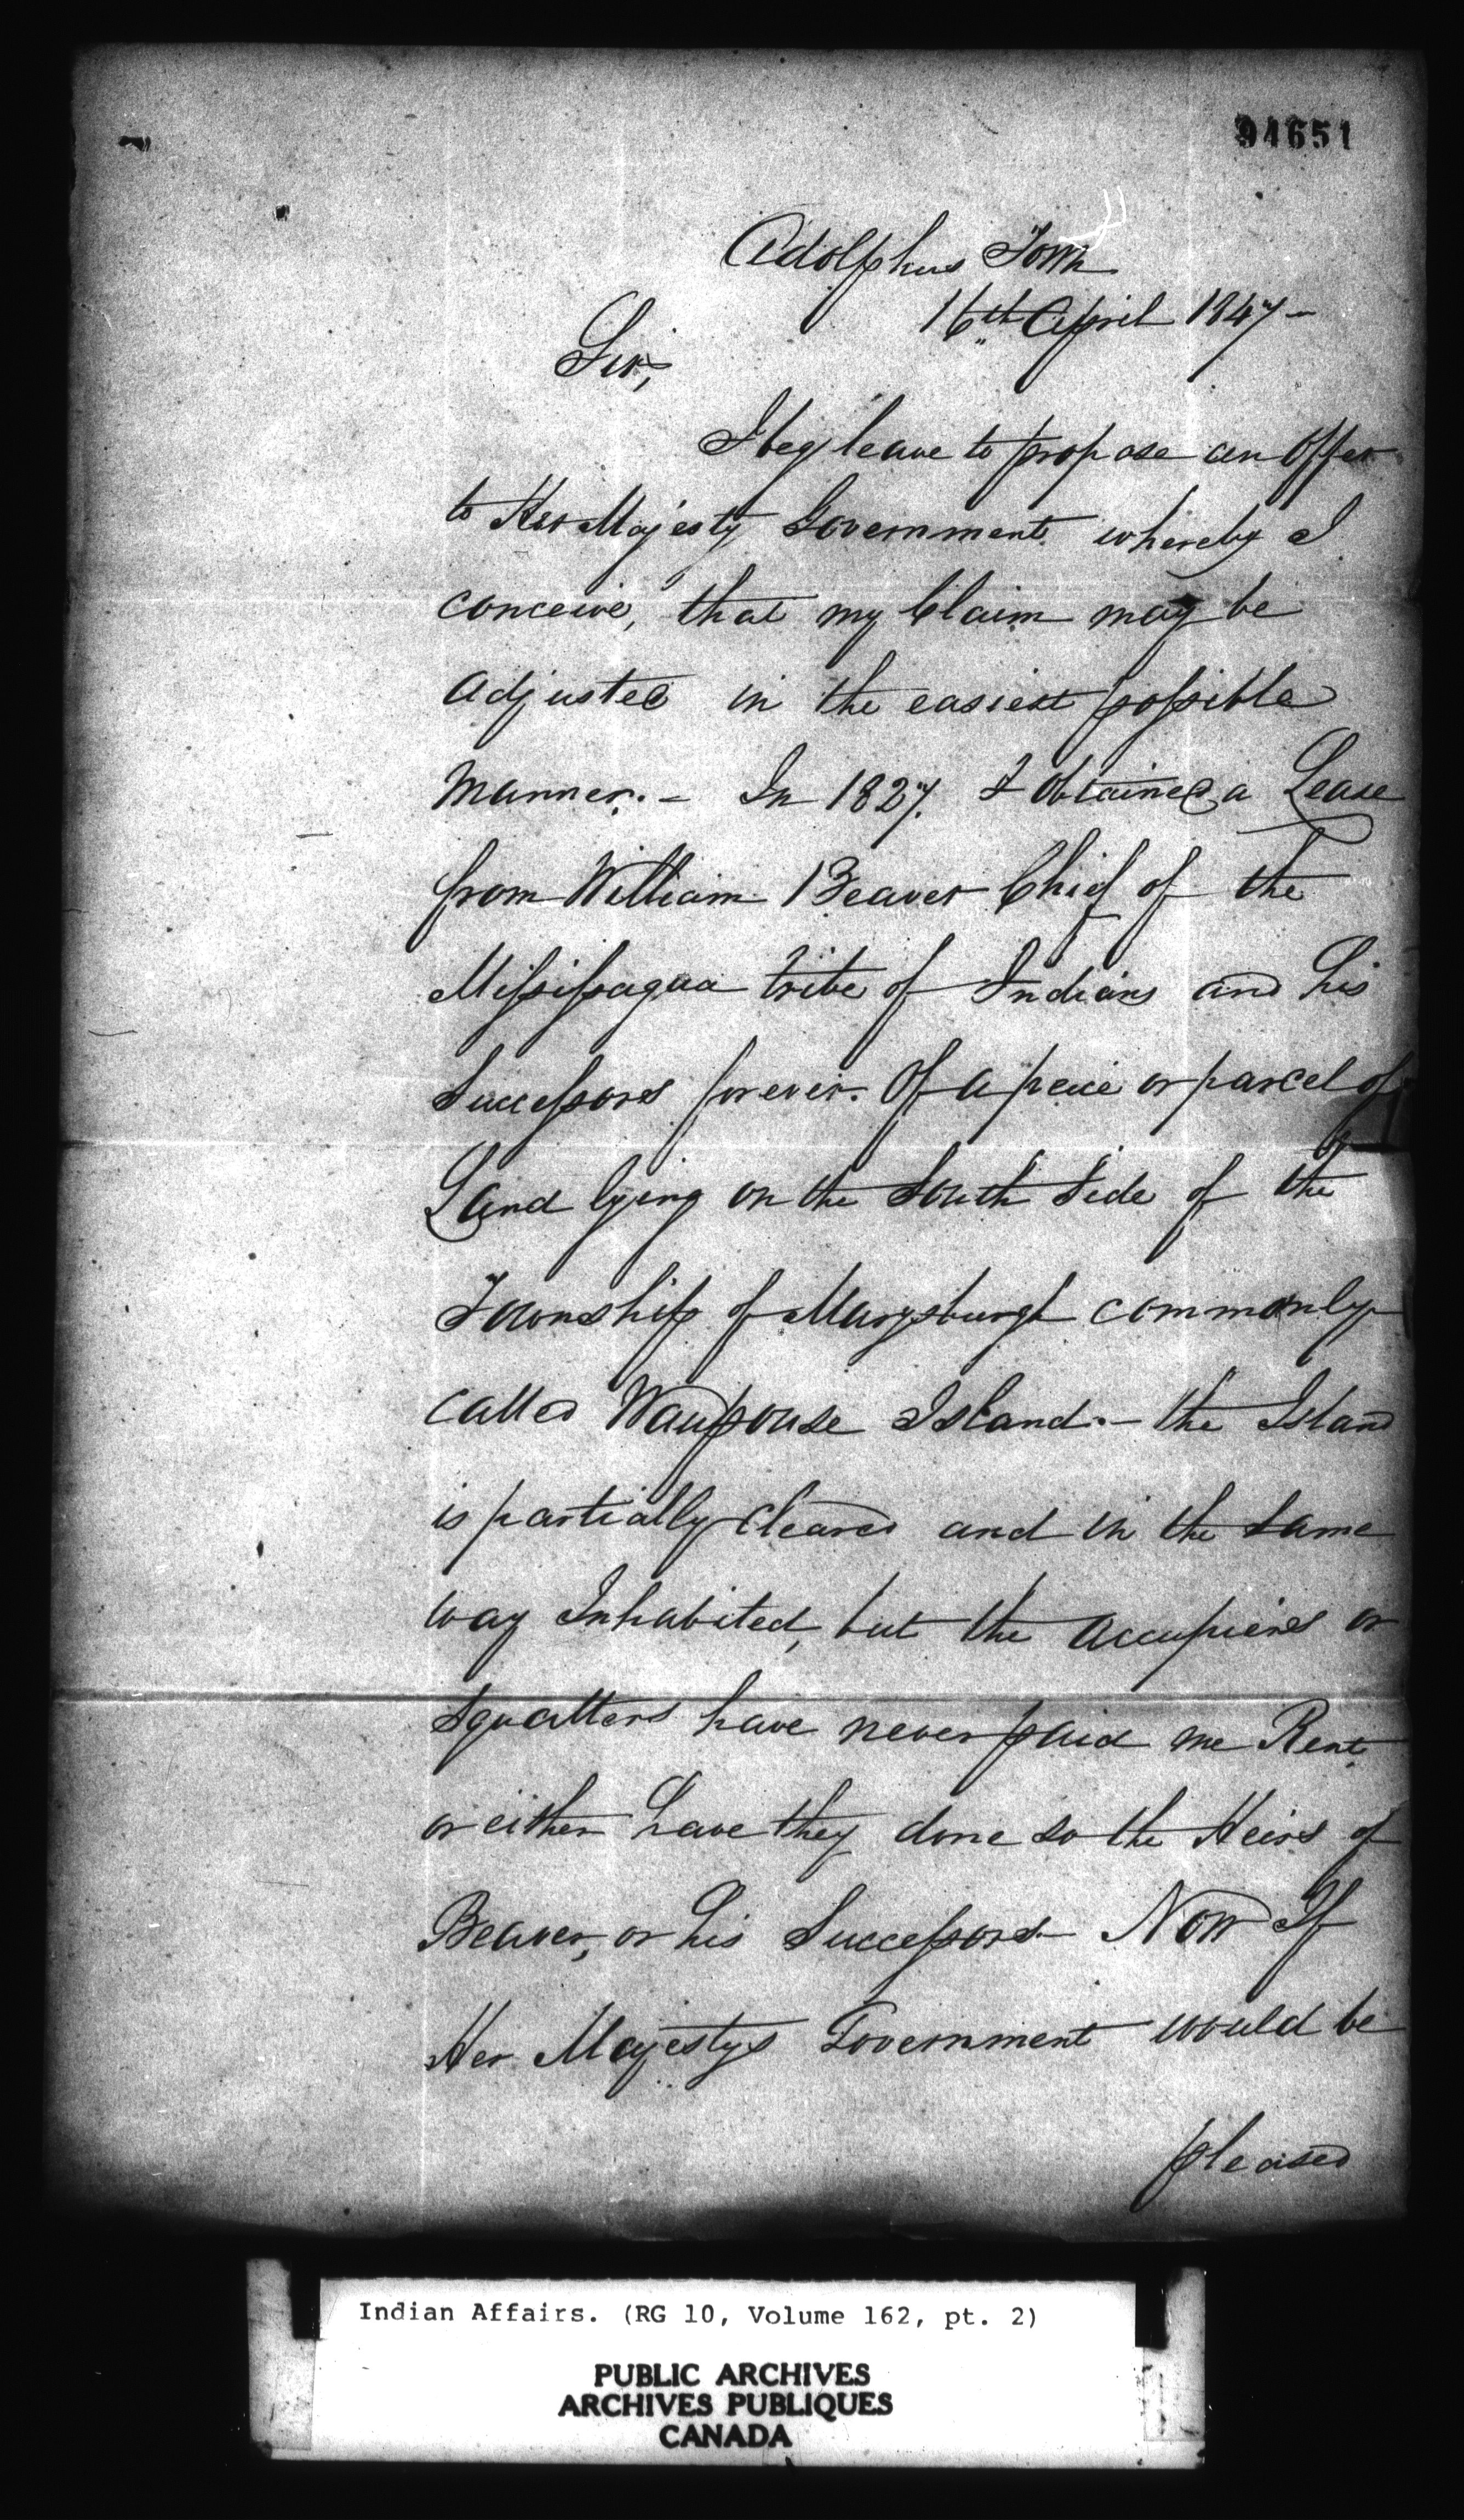 94651
Adolphus Town
16th April 1847 -
Sir,
I beg leave to propose an Offer
to Her Majesty Government whereby I
conceive, that my Claim may be
adjusted in the easiest possible
Manner. - In 1827. I obtained a Lease
from William Beaver Chief of the
Missisagua tribe of Indians and his
Successors forever. Of a peice or parcel of
Land lying on the South Side of the
Township of Marysburgh commonly
called Waupouse Island. - the Island
is partially cleared and in the same
way Inhabited, but the Occupiers or
Squatters have never paid me Rent
or either have they done so the Heirs of
Beaver, or his Successors - Now If
Her Majestys Government would be
pleased
Indian Affairs. (RG 10, Volume 162, pt. 2)
PUBLIC ARCHIVES
ARCHIVES PUBLIQUES
CANADA